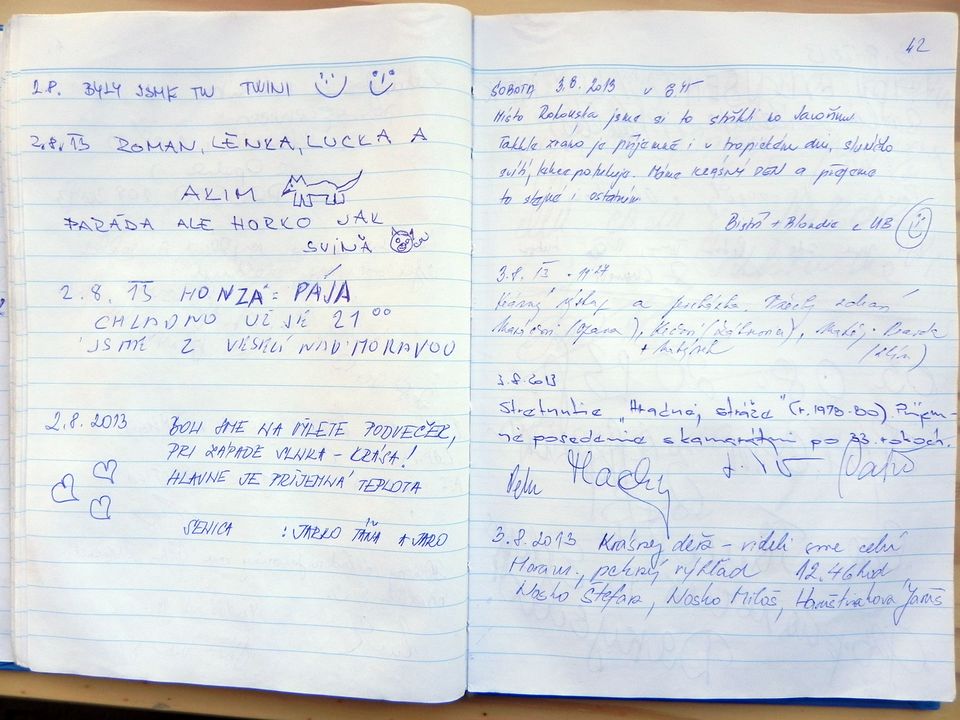 2.8. BYLY JSME TU TWINI
2.8.13 ROMAN, LENKA, LUCKA A
AKIM
PARÁDA ALE HORKO JAK
SVIŇA
2.8.13 HONZA = PÁJA
CHLADNO UŽ JE 21 00
JSME Z VESELÍ NAD MORAVOU
2.8.2013 BOLI SME NA VÝLETE PODVEČER,
PRI ZÁPADE SLNKA - KRÁSA!
HLAVNE JE PRÍJEMNÁ TEPLOTA
SENICA : JARKO TÁŇA A JARO
42
SOBOTA 3.8.2013 v 8.45
Místo Rakouska jsme si to střihli na Javořinu
Takhle zrána je příjemně i v tropickém dni, sluníčko
svítí, . Máme KRÁSNÝ DEN a přejeme
to stejné i ostatním
+ Blondie z UB
3.8.13 - 11:27
Krásný výšlap a procházka.
3.8.2013
Stretnutie "Hradnej stráže" (r. 1978-80). Príjem-
né posedenie s kamarátmi po 33. rokoch.
3.8.2013 Krásnej deň - videli sme celú
Moravu, pekný výhľad 12.46hod
Nosko Štefan, Nosko Miloš,